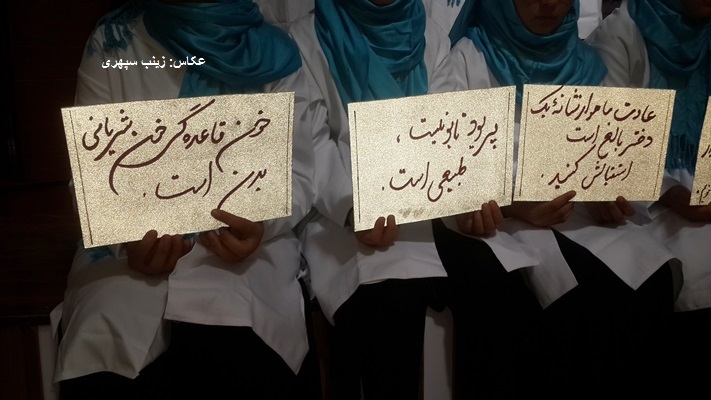 عکاس: زینب سپهری
خون قاعده‌گی خون شریانی
بدن است.
پریود تابو نیست،
طبیعی است.
عادت ماهوار نشانهٔ یک
دختر بالغ است
استقبالش کنید.